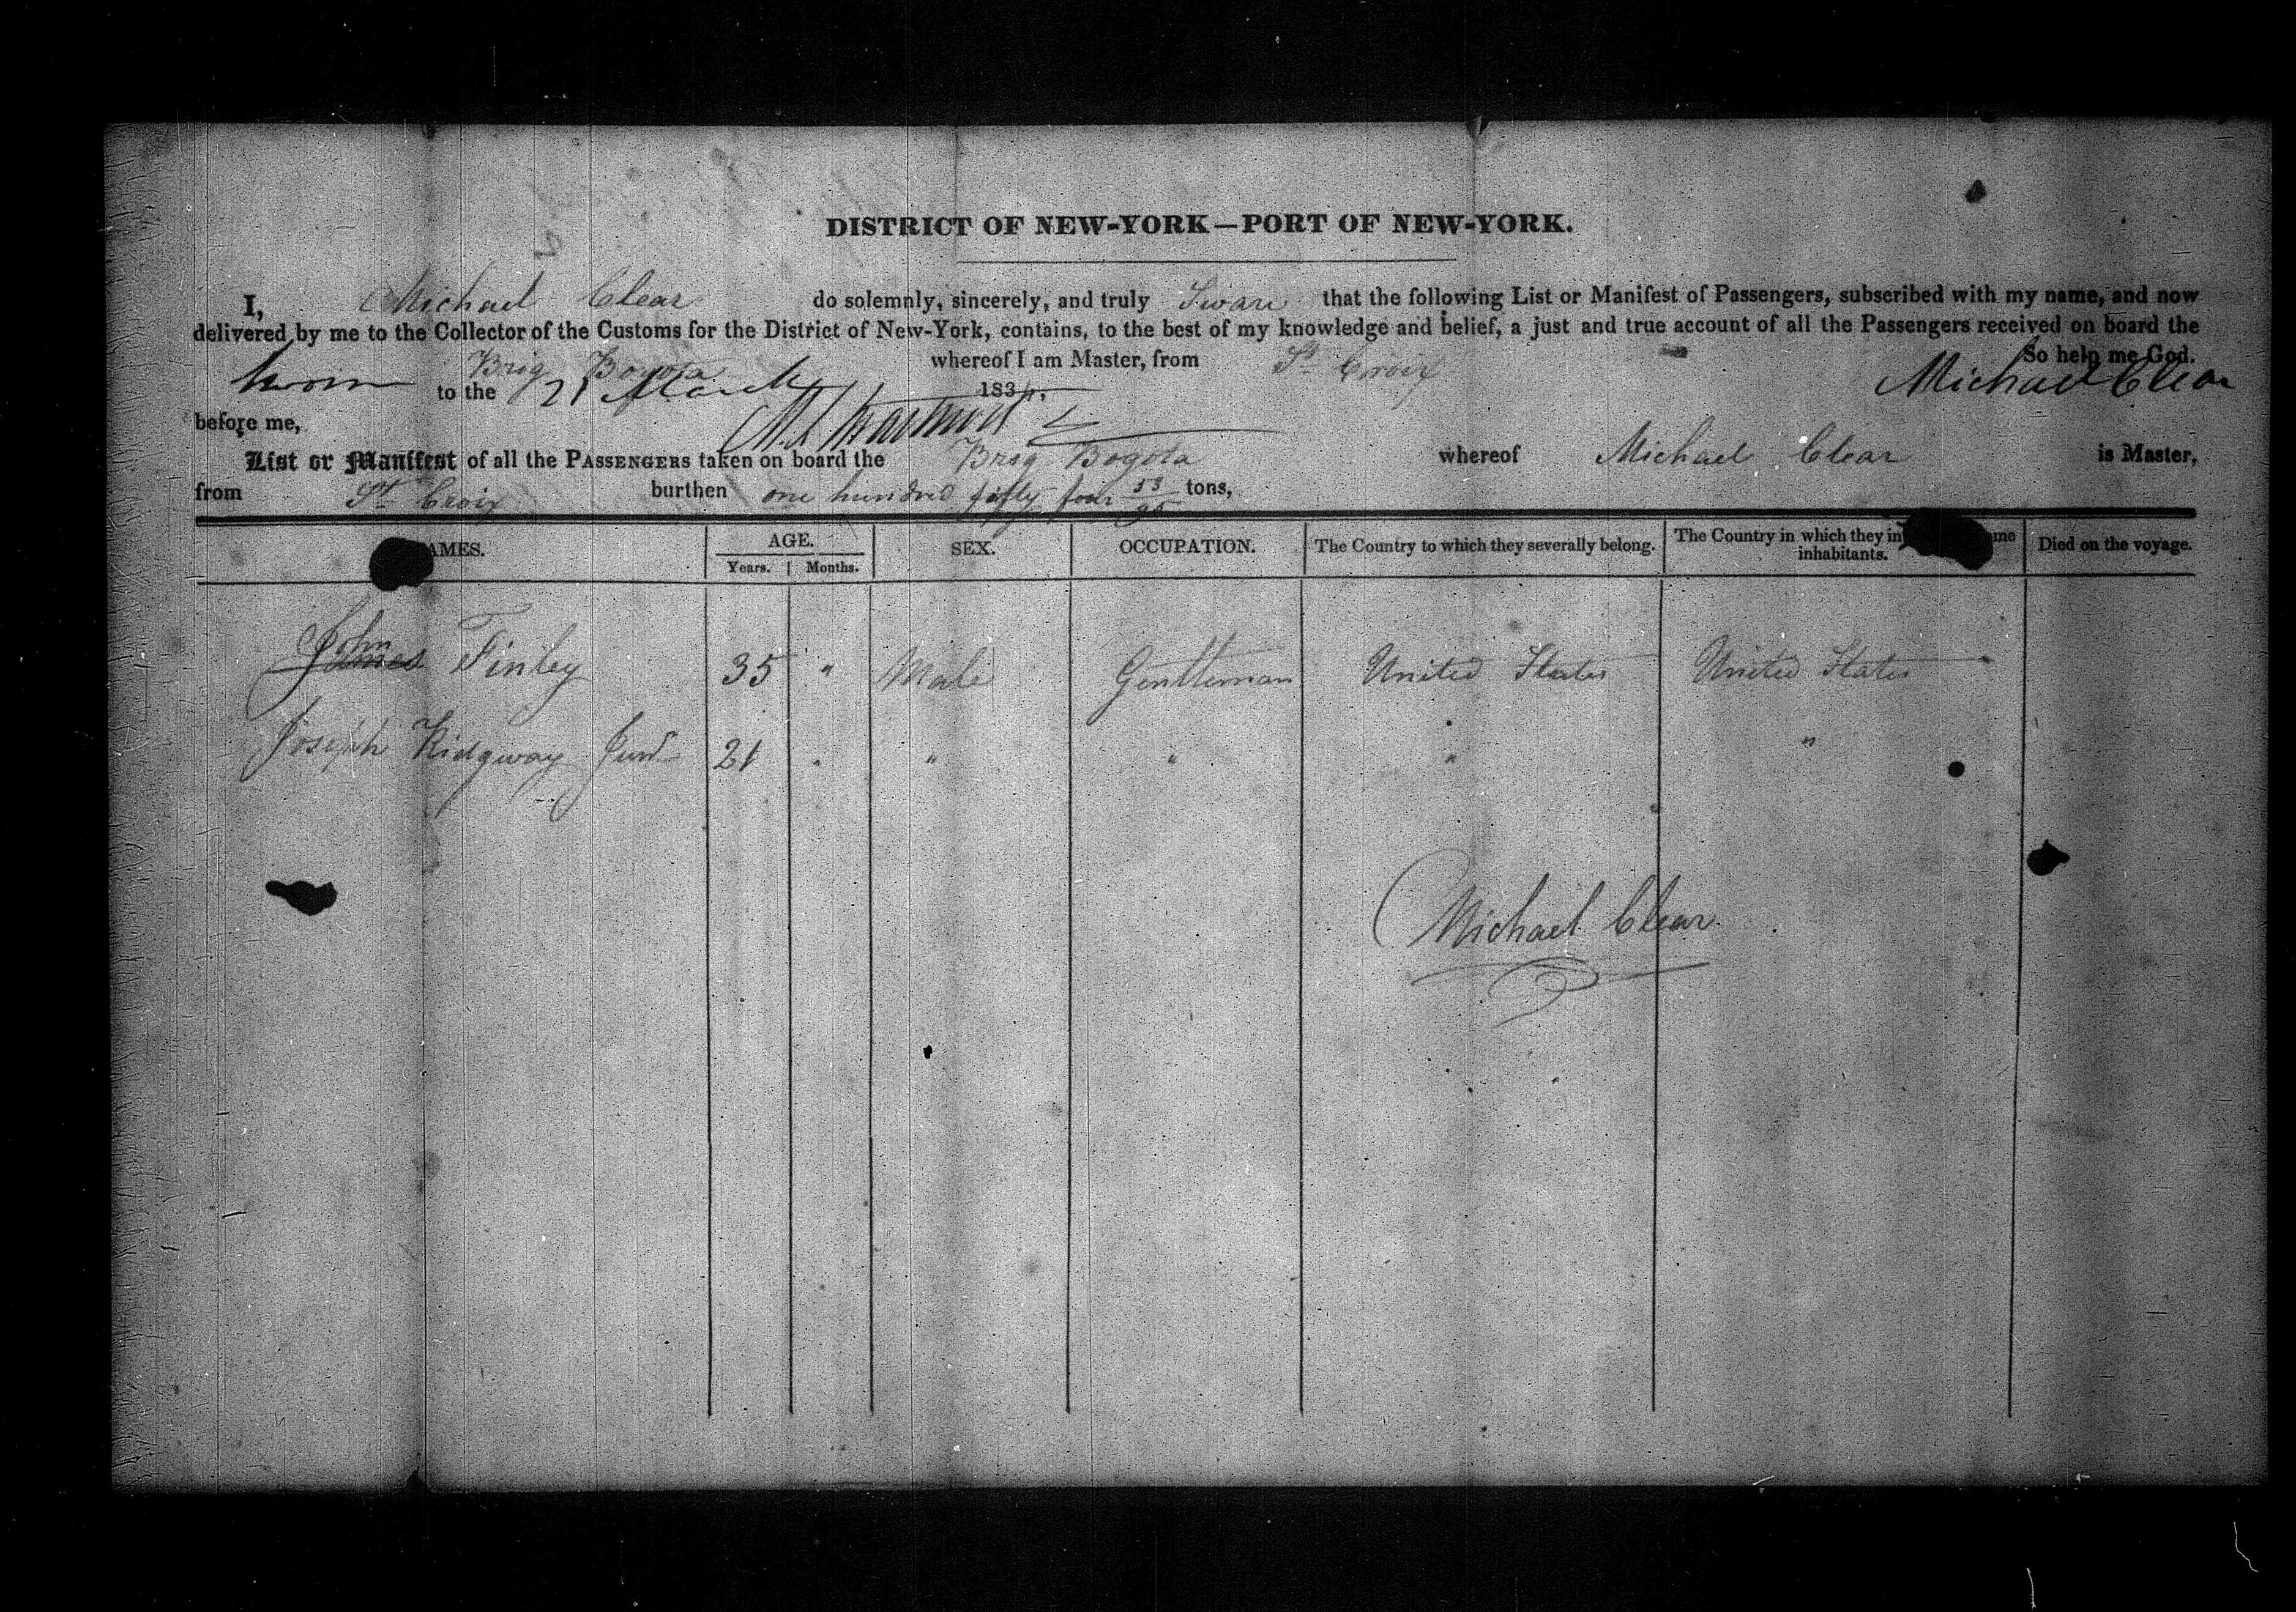 DISTRICT OF NEW-YORK—PORT OF NEW-YORK.
I, Michael Clear do solemnly, sincerely, and truly Swear that the following List or Manifest of Passengers, subscribed with my name, and now
delivered by me to the Collector of the Customs for the District of New-York, contains, to the best of my knowledge and belief, a just and true account of all the Passengers received on board the
Brig Bogota whereof I am Master, from St Croix So help me God.
Sworn to the 21 March 1834. Michael Clear
before me,
List or Manifest of all the PASSENGERS taken on board the Brig Bogota whereof Michael Clear is Master,
from St Croix burthen one hundred fifty four 53/95 tons,
AMES. AGE. SEX. OCCUPATION. The Country to which they severally belong. The Country in which they in me inhabitants. Died on the voyage.
Years. Months.
John James Finley 35 " Male Gentleman United States United States
Joseph Ridgway Junr 21 " " " " "
Michael Clear